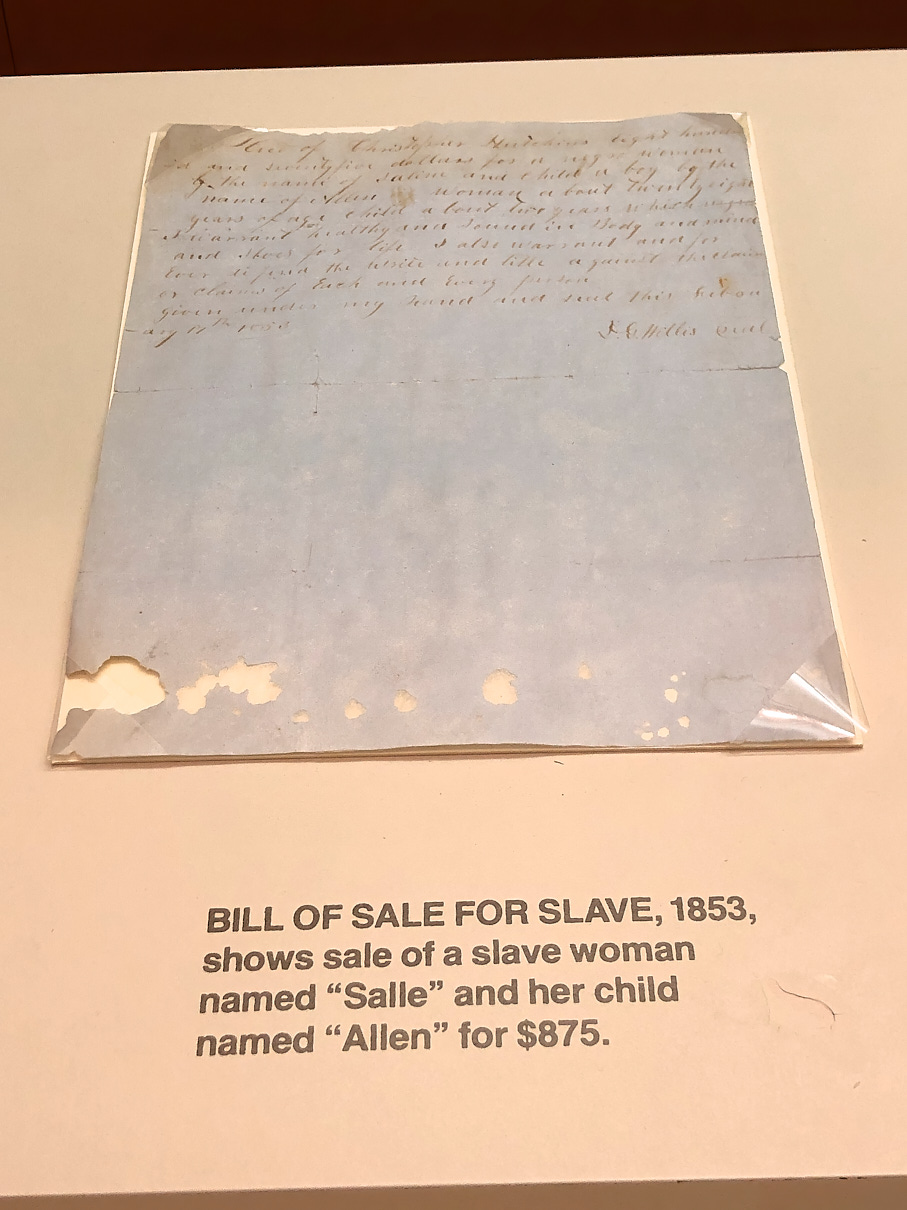 of Christopher Hutchins Eight hund
and seventyfive dollars for a negro woman
by the name of and Child a boy by the
name of Allen Woman a bout Twentyeight
years of age Child a bout Two years which
I warrant healthy and Sound in Body and mind
and for life I also warrant and for
Ever the and title against the
or claims of Each and Every person
given under my hand and seal this
ary 17th 1853
Seal
BILL OF SALE FOR SLAVE, 1853,
shows sale of a slave woman
named “Salle” and her child
named “Allen” for $875.